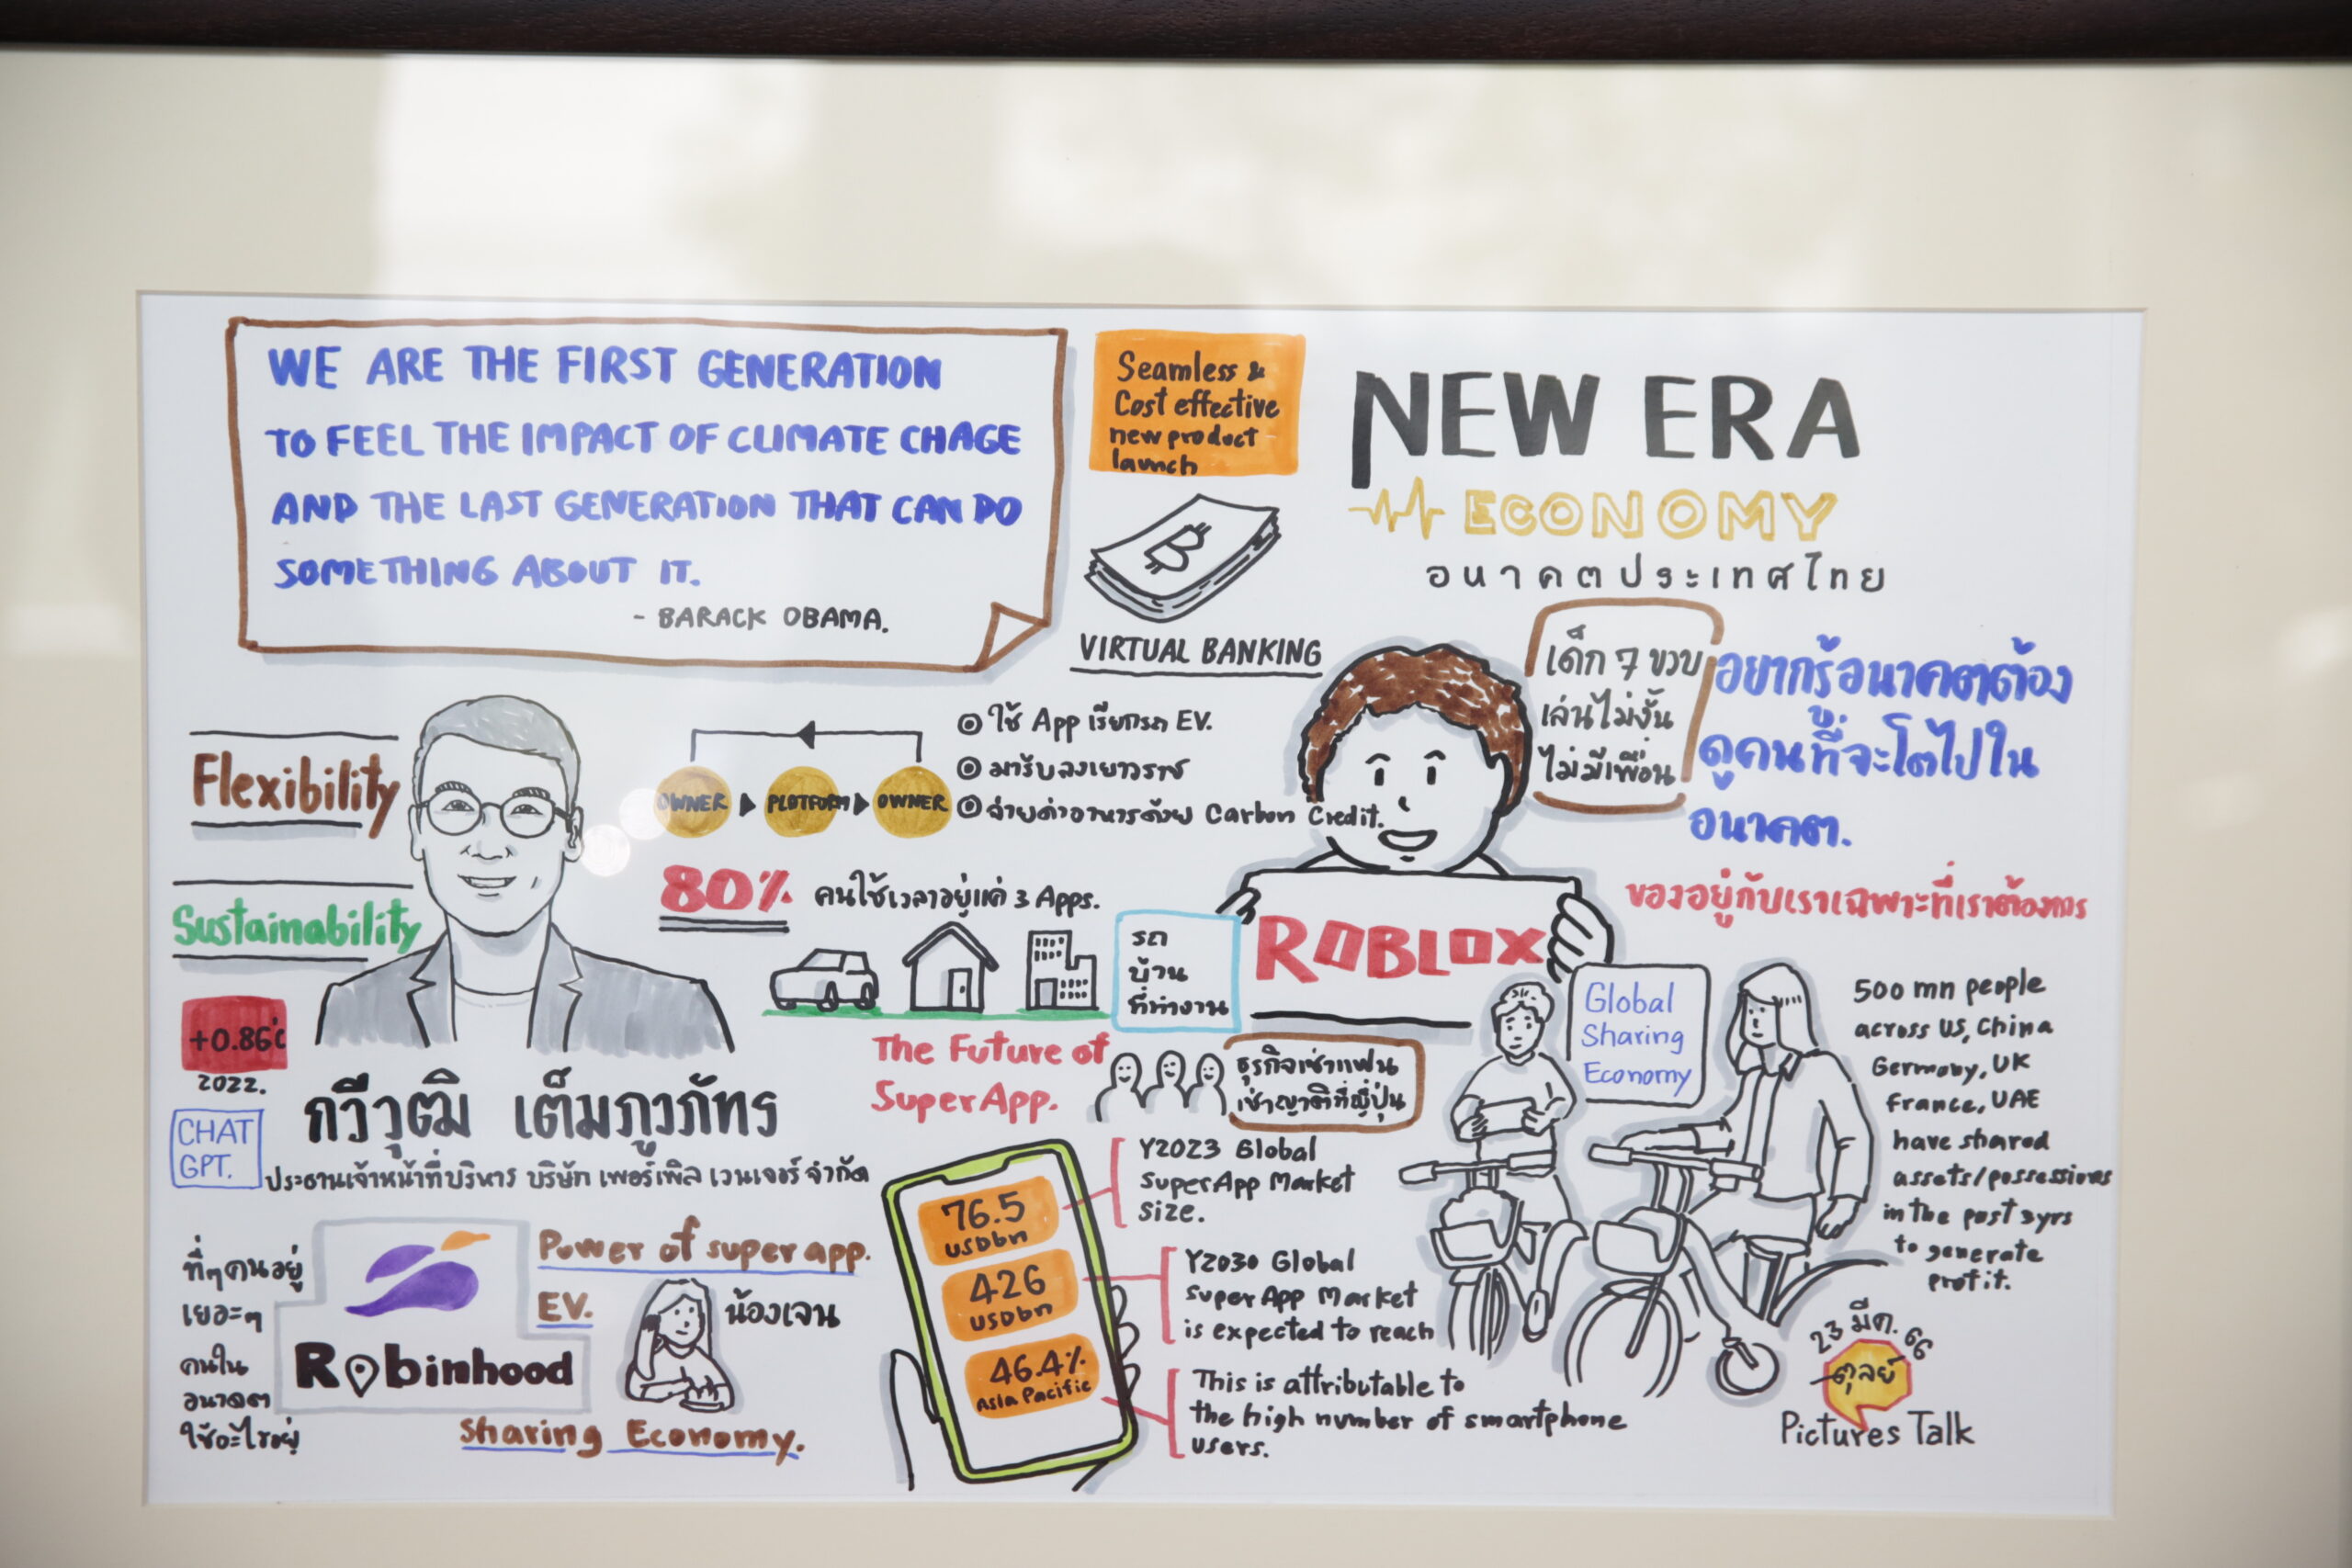 WE ARE THE FIRST GENERATION
TO FEEL THE IMPACT OF CLIMATE CHAGE
AND THE LAST GENERATION THAT CAN DO
SOMETHING ABOUT IT.
- BARACK OBAMA.
Seamless &
Cost effective
new product
launch
VIRTUAL BANKING
NEW ERA
ECONOMY
อนาคตประเทศไทย
เด็ก 7 ขวบ
เล่นไม่งั้น
ไม่มีเพื่อน
อยากรู้อนาคตต้อง
ดูคนที่จะโตไปใน
อนาคต.
ของอยู่กับเราเฉพาะที่เราต้องการ
Flexibility
Sustainability
+0.86°c
2022.
CHAT
GPT.
OWNER
PLATFORM
OWNER
ใช้ App เรียกรถ EV.
มารับลงเยาวราช
จ่ายค่าอาหารด้วย Carbon Credit.
80% คนใช้เวลาอยู่แค่ 3 Apps.
รถ
บ้าน
ที่ทำงาน
ROBLOX
The Future of
SuperApp.
ธุรกิจเช่าแฟน
เช่าญาติที่ญี่ปุ่น
Global
Sharing
Economy
500 mn people
across US, China
Germany, UK
France, UAE
have shared
assets/possessions
in the past 2yrs
to generate
profit.
กวีวุฒิ เต็มภูวภัทร
ประธานเจ้าหน้าที่บริหาร บริษัท เพอร์เพิล เวนเจอร์ จำกัด
ที่ๆคนอยู่
เยอะๆ
คนใน
อนาคต
ใช้อะไรอยู่
Robinhood
Power of super app.
EV.
น้องเจน
Sharing Economy.
76.5
USDbn
426
USDbn
46.4%
Asia Pacific
Y2023 Global
SuperApp Market
size.
Y2030 Global
super App Market
is expected to reach
This is attributable to
the high number of smartphone
users.
23 มีค. 66
ตุลย์
Pictures Talk